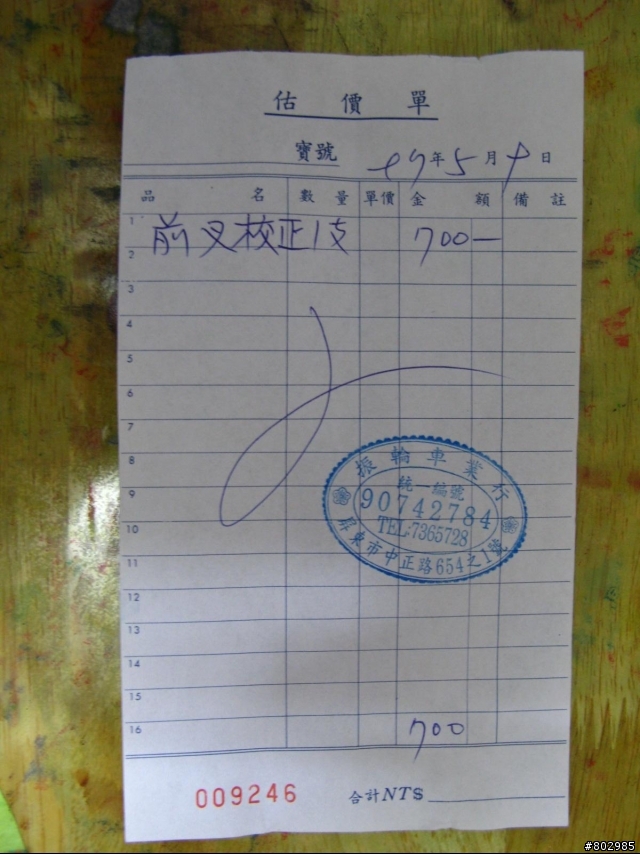 估價單
寶號 97年5月9日
品名 數量 單價 金額 備註
1 前叉校正1支 700—
2
3
4
5
6
7
8
9
10
11
12
13
14
15
16 700
振輪車業行
統一編號
90742784
TEL:7365728
屏東市中正路654之1號
009246 合計NT$
#802985